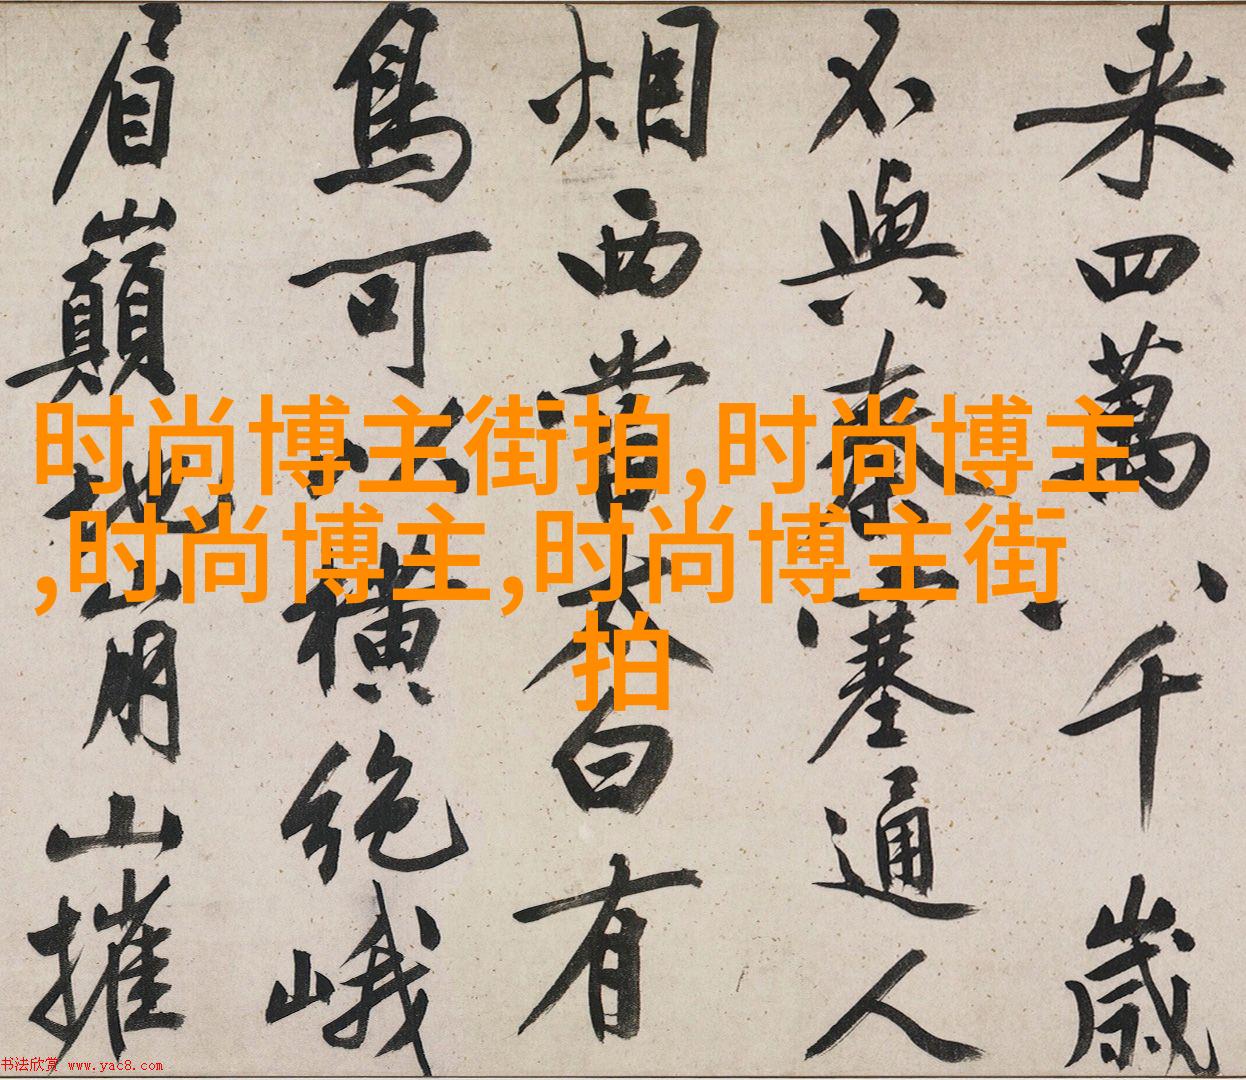 来四萬八千歲
不與秦塞通人
烟西當太白有
鳥可以橫絶峨
眉巔地崩山摧
时尚博主街拍,时尚博主
,时尚博主,时尚博主街
拍
书法欣赏 www.yac8.com